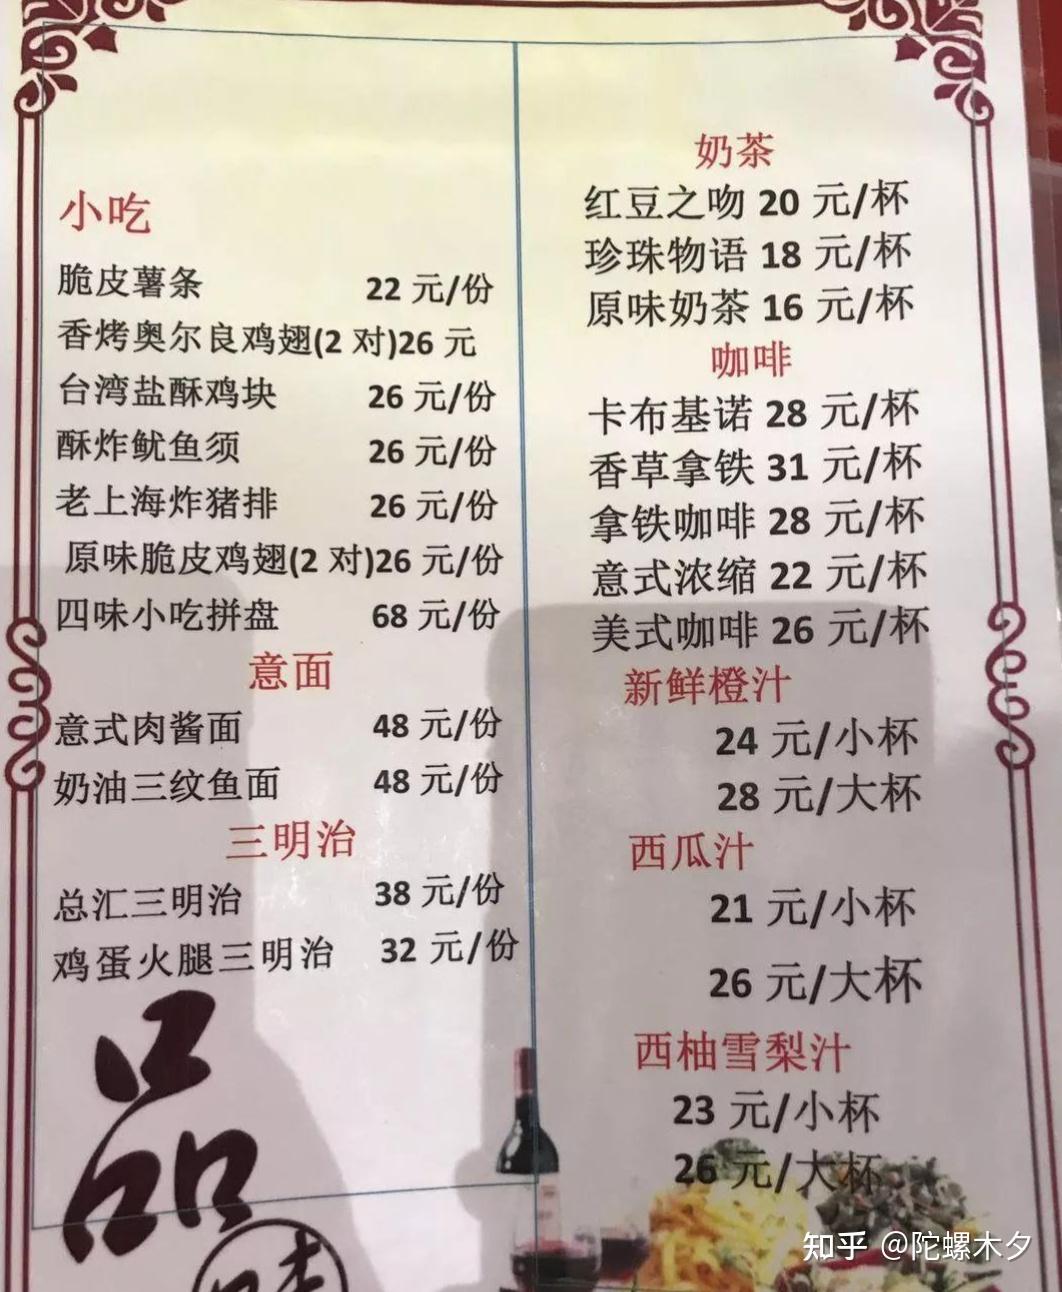 小吃
脆皮薯条 22 元/份
香烤奥尔良鸡翅(2 对)26 元
台湾盐酥鸡块 26 元/份
酥炸鱿鱼须 26 元/份
老上海炸猪排 26 元/份
原味脆皮鸡翅(2 对)26 元/份
四味小吃拼盘 68 元/份
意面
意式肉酱面 48 元/份
奶油三纹鱼面 48 元/份
三明治
总汇三明治 38 元/份
鸡蛋火腿三明治 32 元/份
品
味
奶茶
红豆之吻 20 元/杯
珍珠物语 18 元/杯
原味奶茶 16 元/杯
咖啡
卡布基诺 28 元/杯
香草拿铁 31 元/杯
拿铁咖啡 28 元/杯
意式浓缩 22 元/杯
美式咖啡 26 元/杯
新鲜橙汁
24 元/小杯
28 元/大杯
西瓜汁
21 元/小杯
26 元/大杯
西柚雪梨汁
23 元/小杯
26 元/大杯
知乎 @陀螺木夕